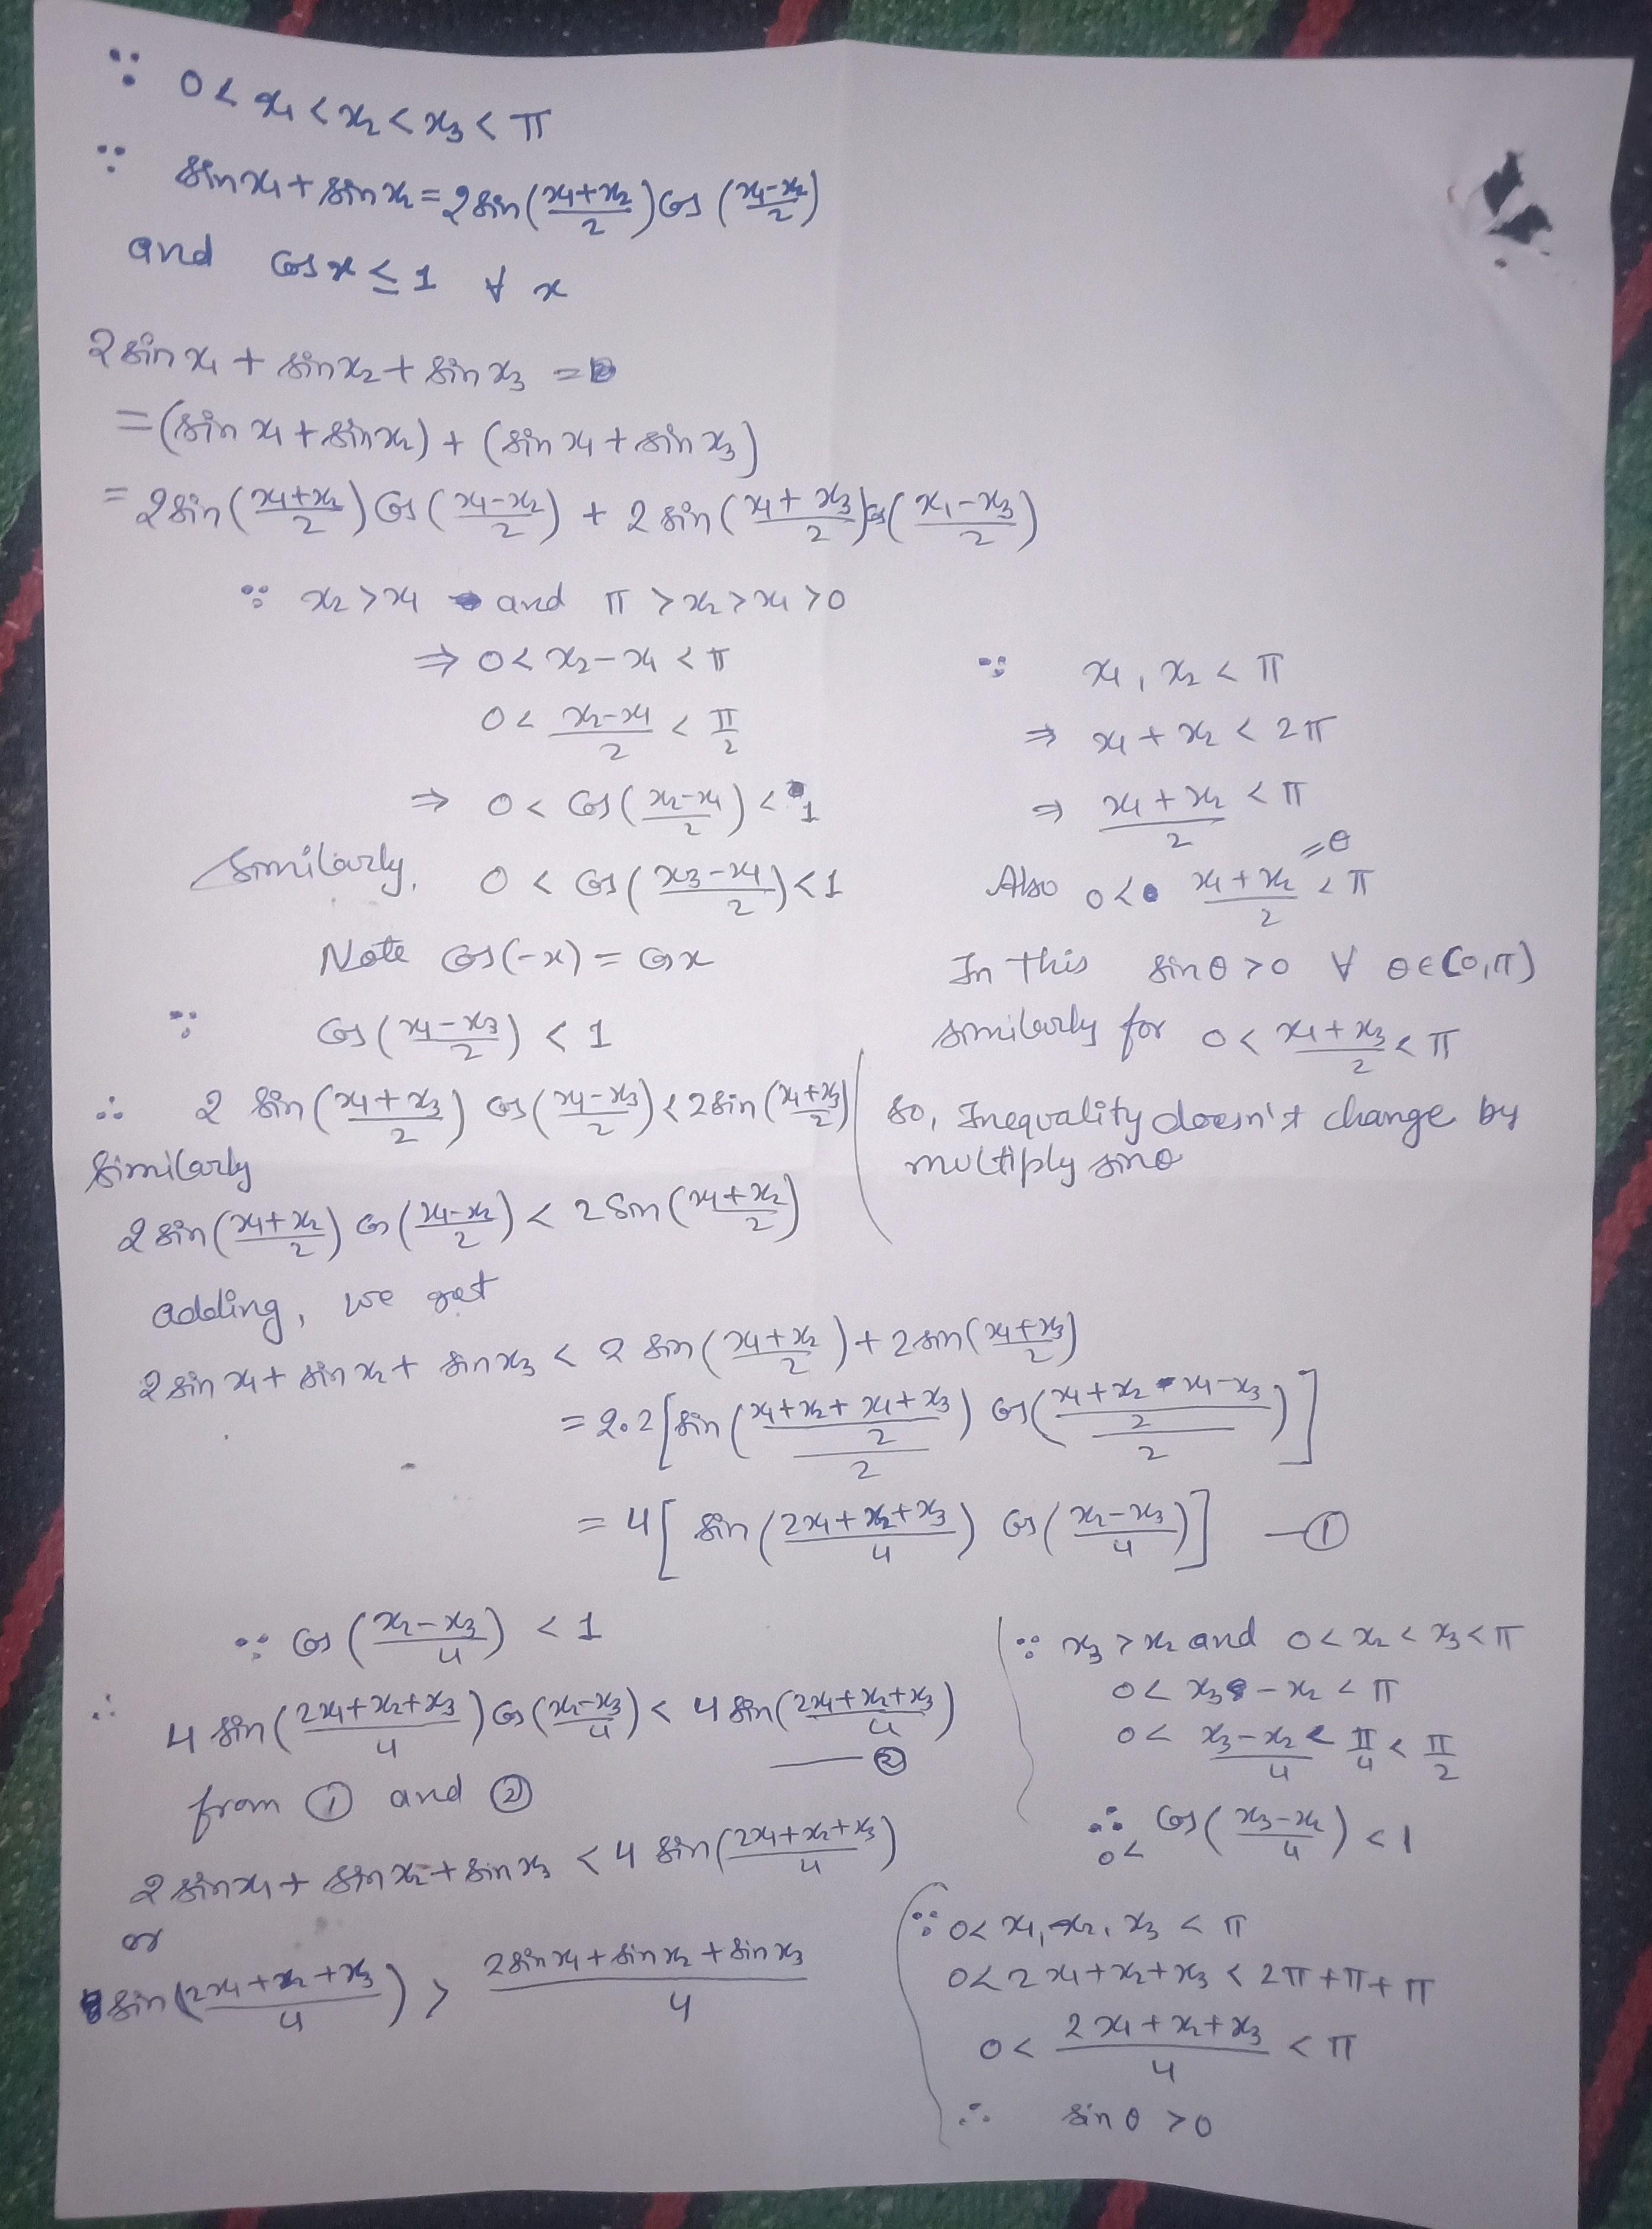 ∵ 0 < x₁ < x₂ < x₃ < π
∵ sin x₁ + sin x₂ = 2 sin((x₁+x₂)/2) cos((x₁-x₂)/2)
and cos x ≤ 1 ∀ x
2 sin x₁ + sin x₂ + sin x₃ =
= (sin x₁ + sin x₂) + (sin x₁ + sin x₃)
= 2 sin((x₁+x₂)/2) cos((x₁-x₂)/2) + 2 sin((x₁+x₃)/2) cos((x₁-x₃)/2)
∵ x₂ > x₁ and π > x₂ > x₁ > 0
⇒ 0 < x₂-x₁ < π
0 < (x₂-x₁)/2 < π/2
⇒ 0 < cos((x₂-x₁)/2) < 1
Similarly, 0 < cos((x₃-x₁)/2) < 1
Note cos(-x) = cos x
∵ cos((x₁-x₃)/2) < 1
∴ 2 sin((x₁+x₃)/2) cos((x₁-x₃)/2) < 2 sin((x₁+x₃)/2)
Similarly
2 sin((x₁+x₂)/2) cos((x₁-x₂)/2) < 2 sin((x₁+x₂)/2)
∵ x₁, x₂ < π
⇒ x₁ + x₂ < 2π
⇒ (x₁+x₂)/2 < π
Also 0 < (x₁+x₂)/2 = θ < π
In this sin θ > 0 ∀ θ ∈ (0,π)
similarly for 0 < (x₁+x₃)/2 < π
so, Inequality doesn't change by
multiply sin θ
adding, we get
2 sin x₁ + sin x₂ + sin x₃ < 2 sin((x₁+x₂)/2) + 2 sin((x₁+x₃)/2)
= 2.2 [sin(((x₁+x₂+x₁+x₃)/2)/2) cos(((x₁+x₂-x₁-x₃)/2)/2)]
= 4 [sin((2x₁+x₂+x₃)/4) cos((x₂-x₃)/4)] —①
∵ cos((x₂-x₃)/4) < 1
∴ 4 sin((2x₁+x₂+x₃)/4) cos((x₂-x₃)/4) < 4 sin((2x₁+x₂+x₃)/4)
—②
from ① and ②
2 sin x₁ + sin x₂ + sin x₃ < 4 sin((2x₁+x₂+x₃)/4)
or
sin((2x₁+x₂+x₃)/4) > (2 sin x₁ + sin x₂ + sin x₃)/4
∵ x₃ > x₂ and 0 < x₂ < x₃ < π
0 < x₃ - x₂ < π
0 < (x₃-x₂)/4 < π/4 < π/2
∴ 0 < cos((x₃-x₂)/4) < 1
∵ 0 < x₁, x₂, x₃ < π
0 < 2x₁+x₂+x₃ < 2π+π+π
0 < (2x₁+x₂+x₃)/4 < π
∴ sin θ > 0